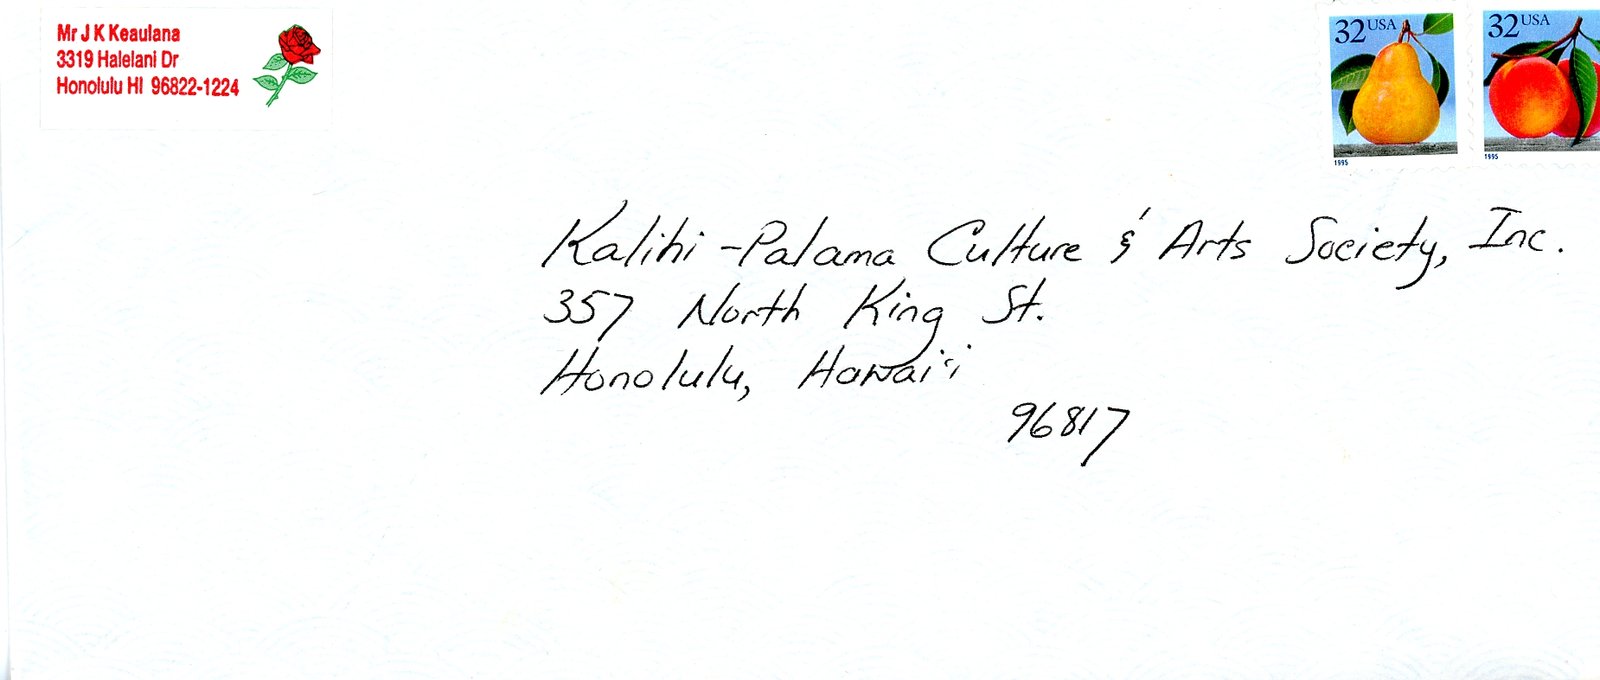 Mr J K Keaulana
3319 Halelani Dr
Honolulu HI 96822-1224
32 USA
1995
32 USA
1995
Kalihi-Palama Culture & Arts Society, Inc.
357 North King St.
Honolulu, Hawai'i
96817